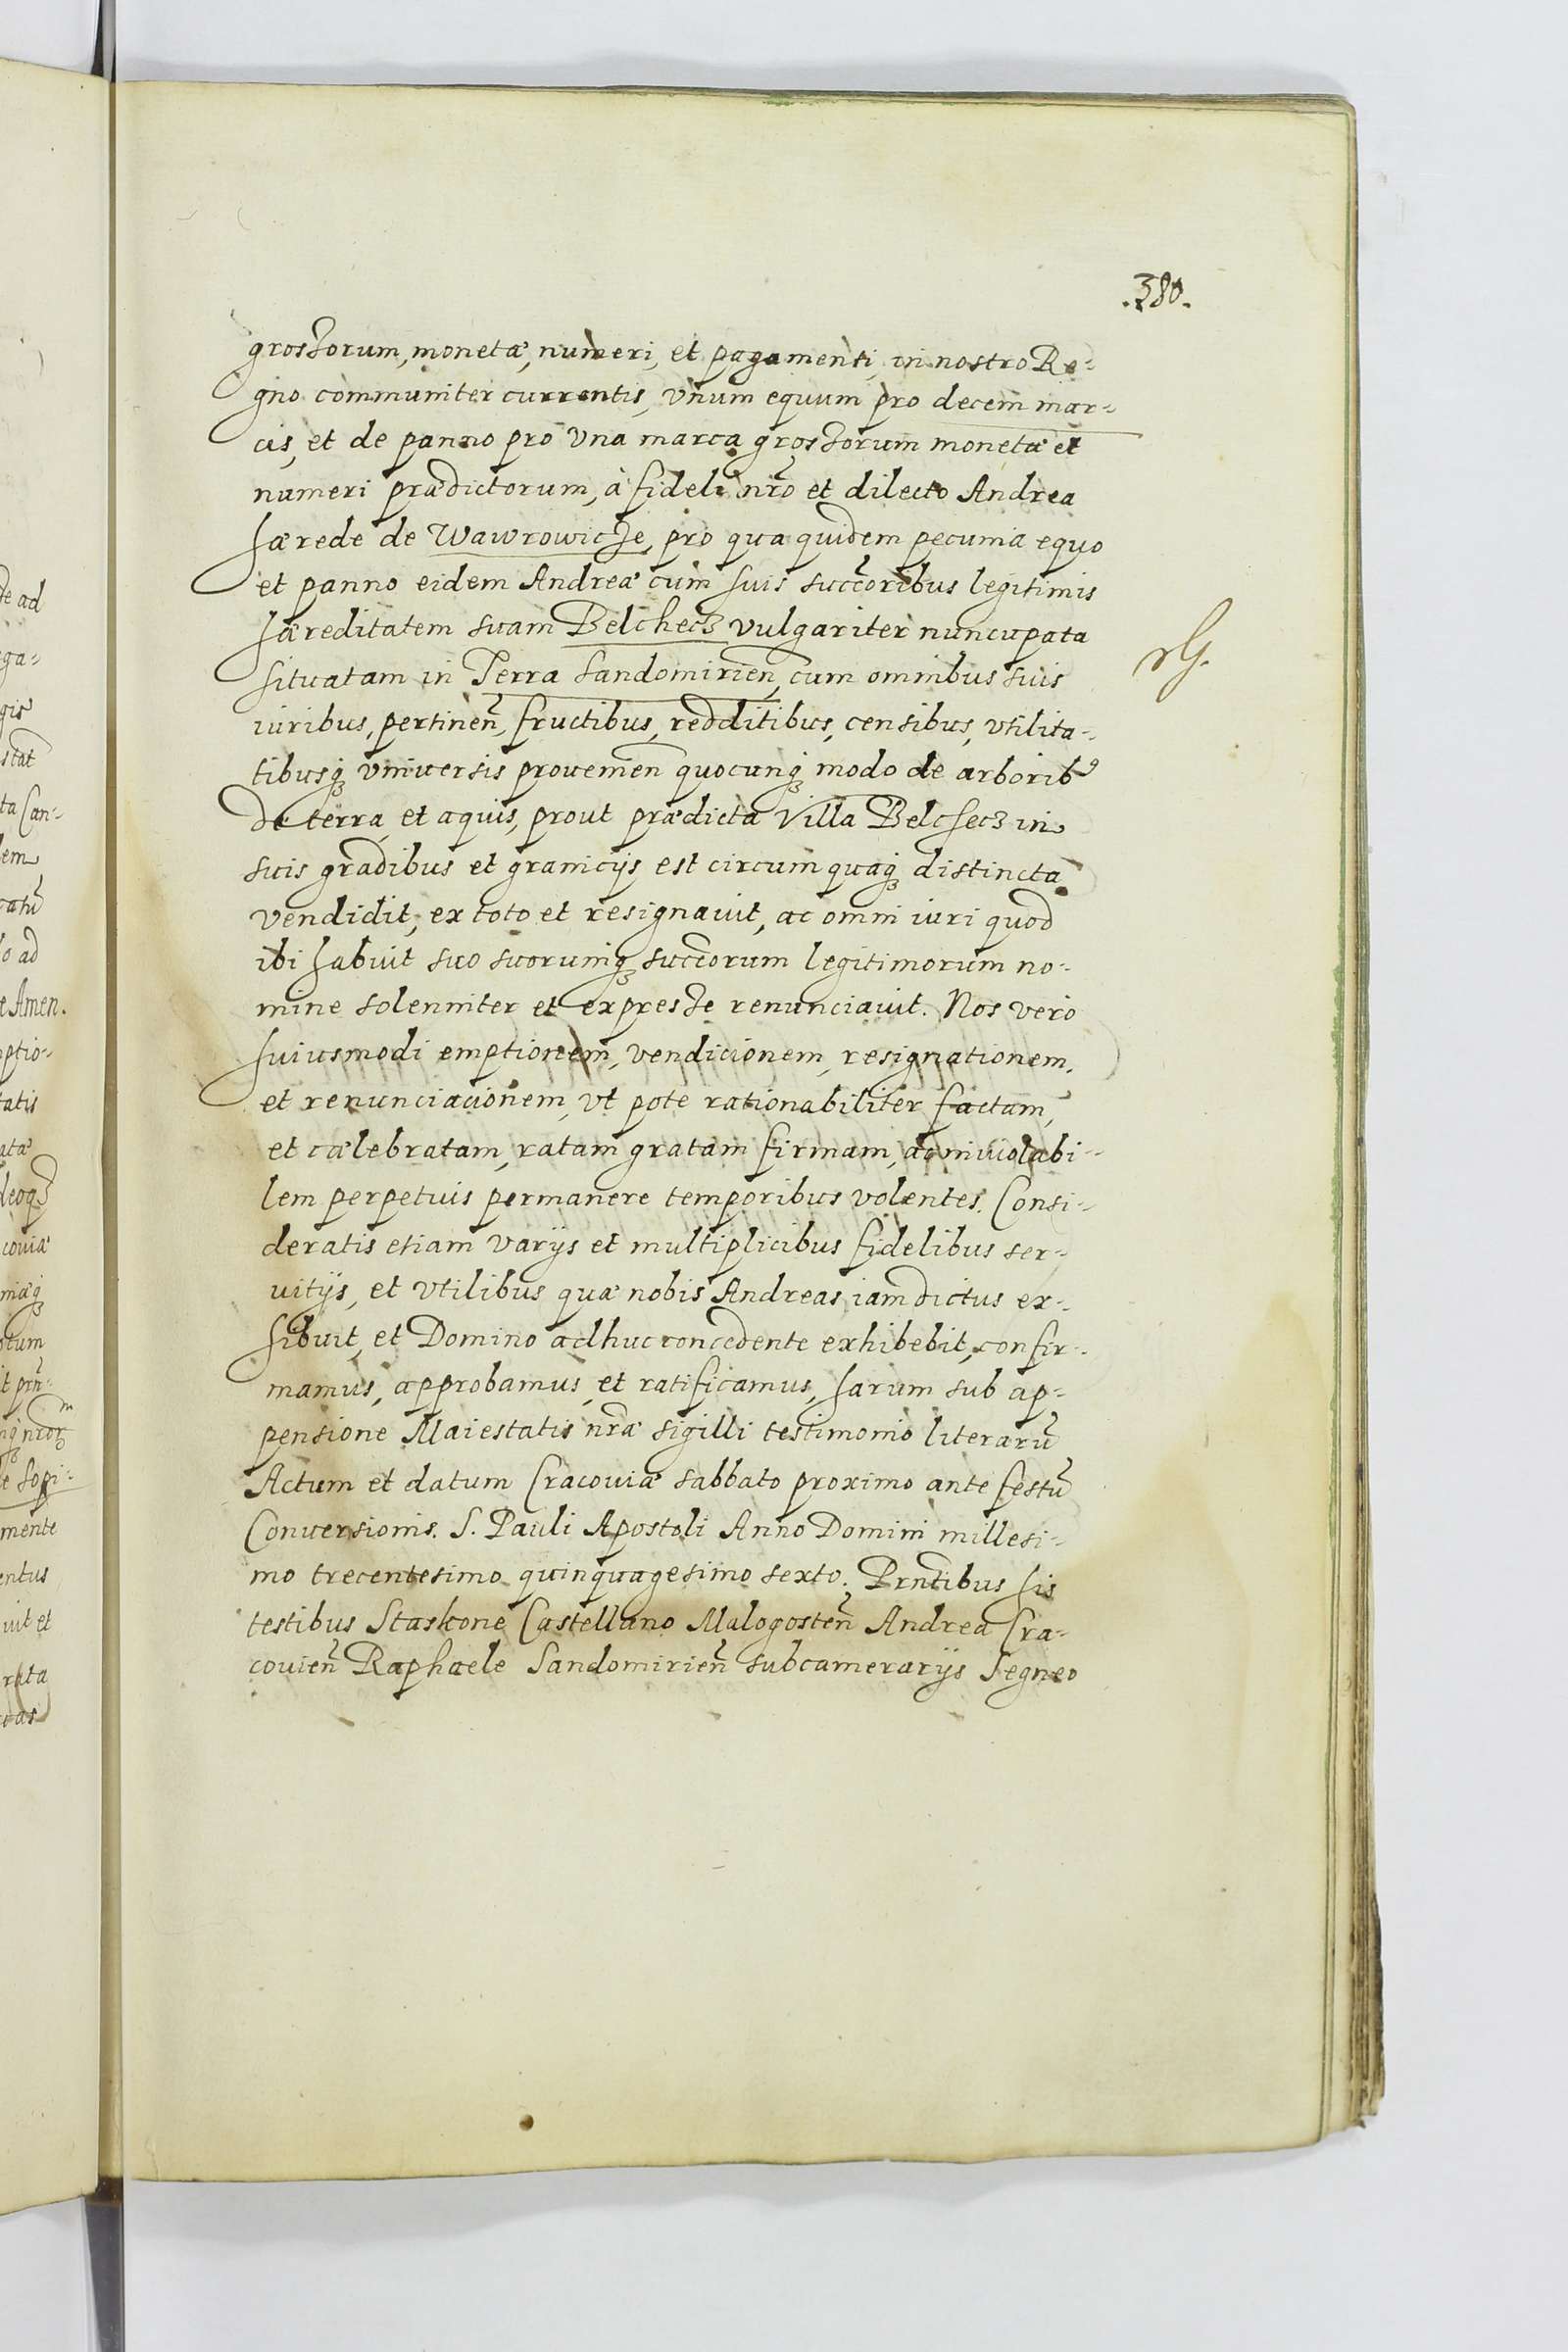 .380.
grossorum, monetæ, numeri, et pagamenti, in nostro Re-
gno communiter currentis, vnum equum pro decem mar-
cis, et de panno pro vna marca grossorum monetæ et
numeri prædictorum, à fideli nr̃o et dilecto Andrea
hærede de Wawrowicze, pro qua quidem pecunia equo
et panno eidem Andreæ cum suis succ̃oribus legitimis
hæreditatem suam Belchecz vulgariter nuncupata
situatam in Terra Sandomirien̄, cum omnibus suis
iuribus, pertinen̄, fructibus, redditibus, censibus, vtilita-
tibusq̃ vniuersis prouenien̄ quocunq̃ modo de arborib⁹
de terra, et aquis, prout prædicta Villa Belchecz in
suis gradibus et granicijs est circumquaq̃ distincta
vendidit, ex toto et resignauit, ac omni iuri quod
ibi habuit suo suorumq̃ succ̃orum legitimorum no-
mine solenniter et expresse renunciauit. Nos vero
huiusmodi emptionem, vendicionem, resignationem,
et renunciacionem, vt pote rationabiliter factam,
et cælebratam, ratam gratam firmam, ac inuiolabi-
lem perpetuis permanere temporibus volentes. Consi-
deratis etiam varijs et multiplicibus fidelibus ser-
uitijs, et vtilibus quæ nobis Andreas iam dictus ex-
hibuit, et Domino adhuc concedente exhibebit, confir-
mamus, approbamus, et ratificamus, harum sub ap-
pensione Maiestatis nr̃æ sigilli testimonio literarũ
Actum et datum Cracouiæ sabbato proximo ante festũ
Conuersionis. S. Pauli Apostoli Anno Domini millesi-
mo trecentesimo quinquagesimo sexto. Prn̄tibus his
testibus Staskone Castellano Malogosten̄ Andrea Cra-
couien̄ Raphaele Sandomirien̄ subcamerarijs Segneo